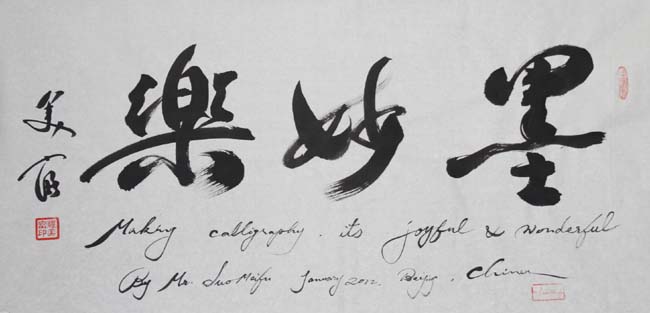 墨妙樂
美富
Making calligraphy. its joyful & wonderful
By Mr. Luo Meifu January 2012. Beijing. China